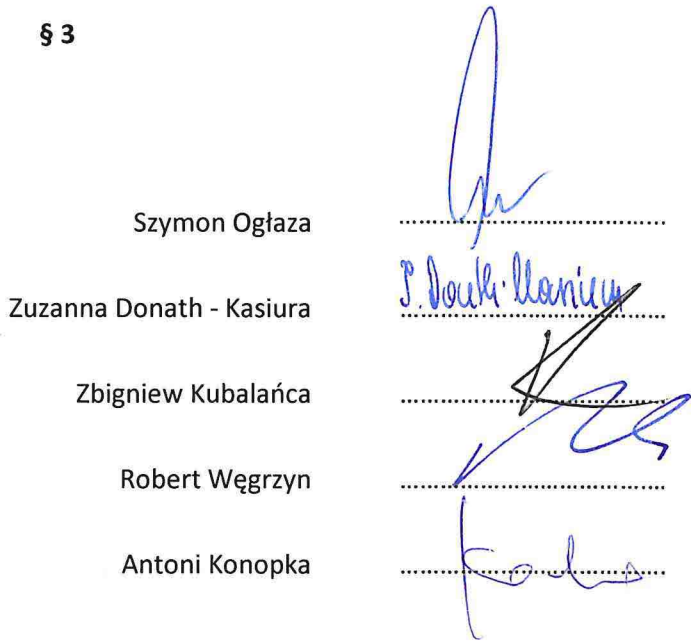 § 3
Szymon Ogłaza ........................................
Zuzanna Donath - Kasiura ........................................
Zbigniew Kubalańca ........................................
Robert Węgrzyn ........................................
Antoni Konopka ........................................